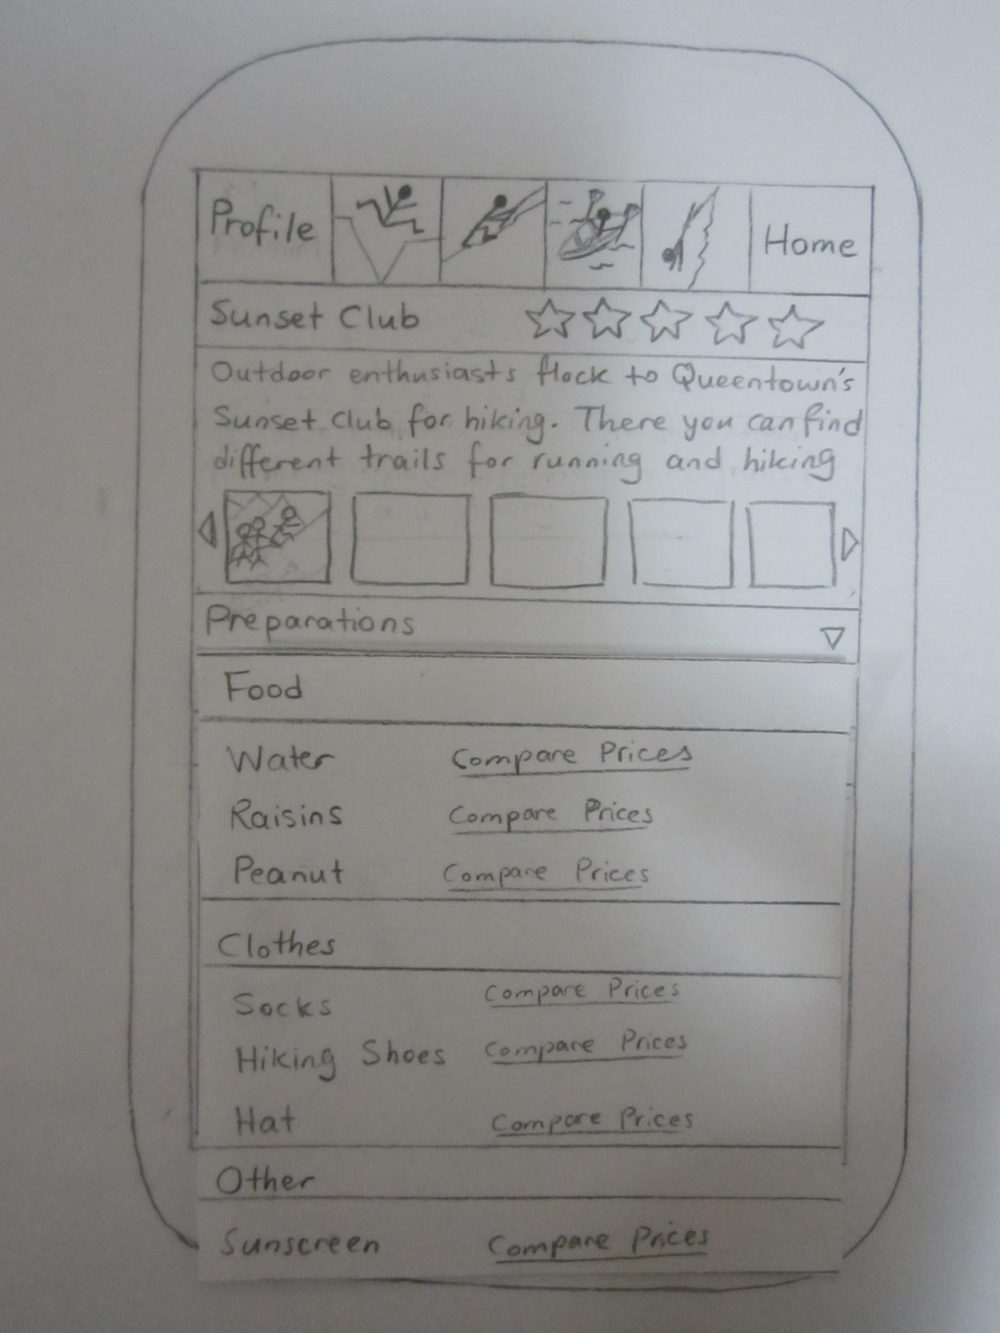 Profile Home
Sunset Club
Outdoor enthusiasts flock to Queentown's
Sunset Club for hiking. There you can find
different trails for running and hiking
Preparations
Food
Water Compare Prices
Raisins Compare Prices
Peanut Compare Prices
Clothes
Socks Compare Prices
Hiking Shoes Compare Prices
Hat Compare Prices
Other
Sunscreen Compare Prices